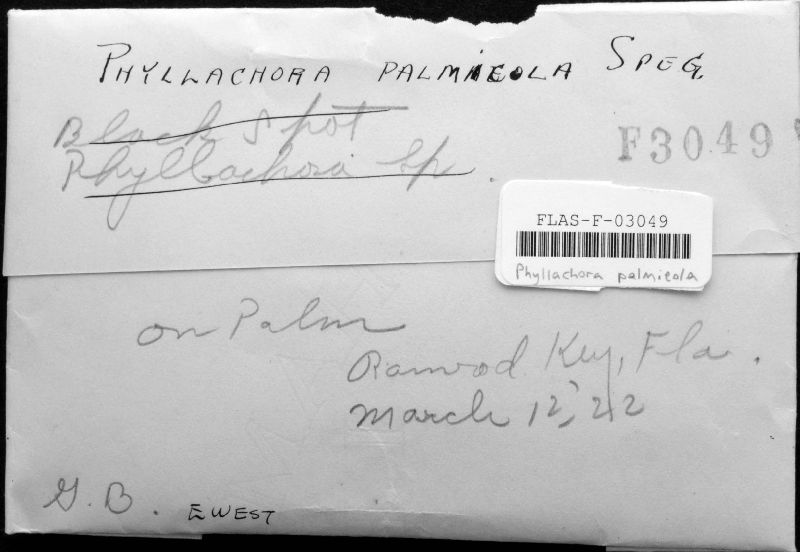 PHYLLACHORA PALMICOLA SPEG.
Black Spot
Phyllachora Sp.
F3049
FLAS-F-03049
Phyllachora palmicola
on Palm
Ramrod Key, Fla.
March 12, 22
G. B. E WEST